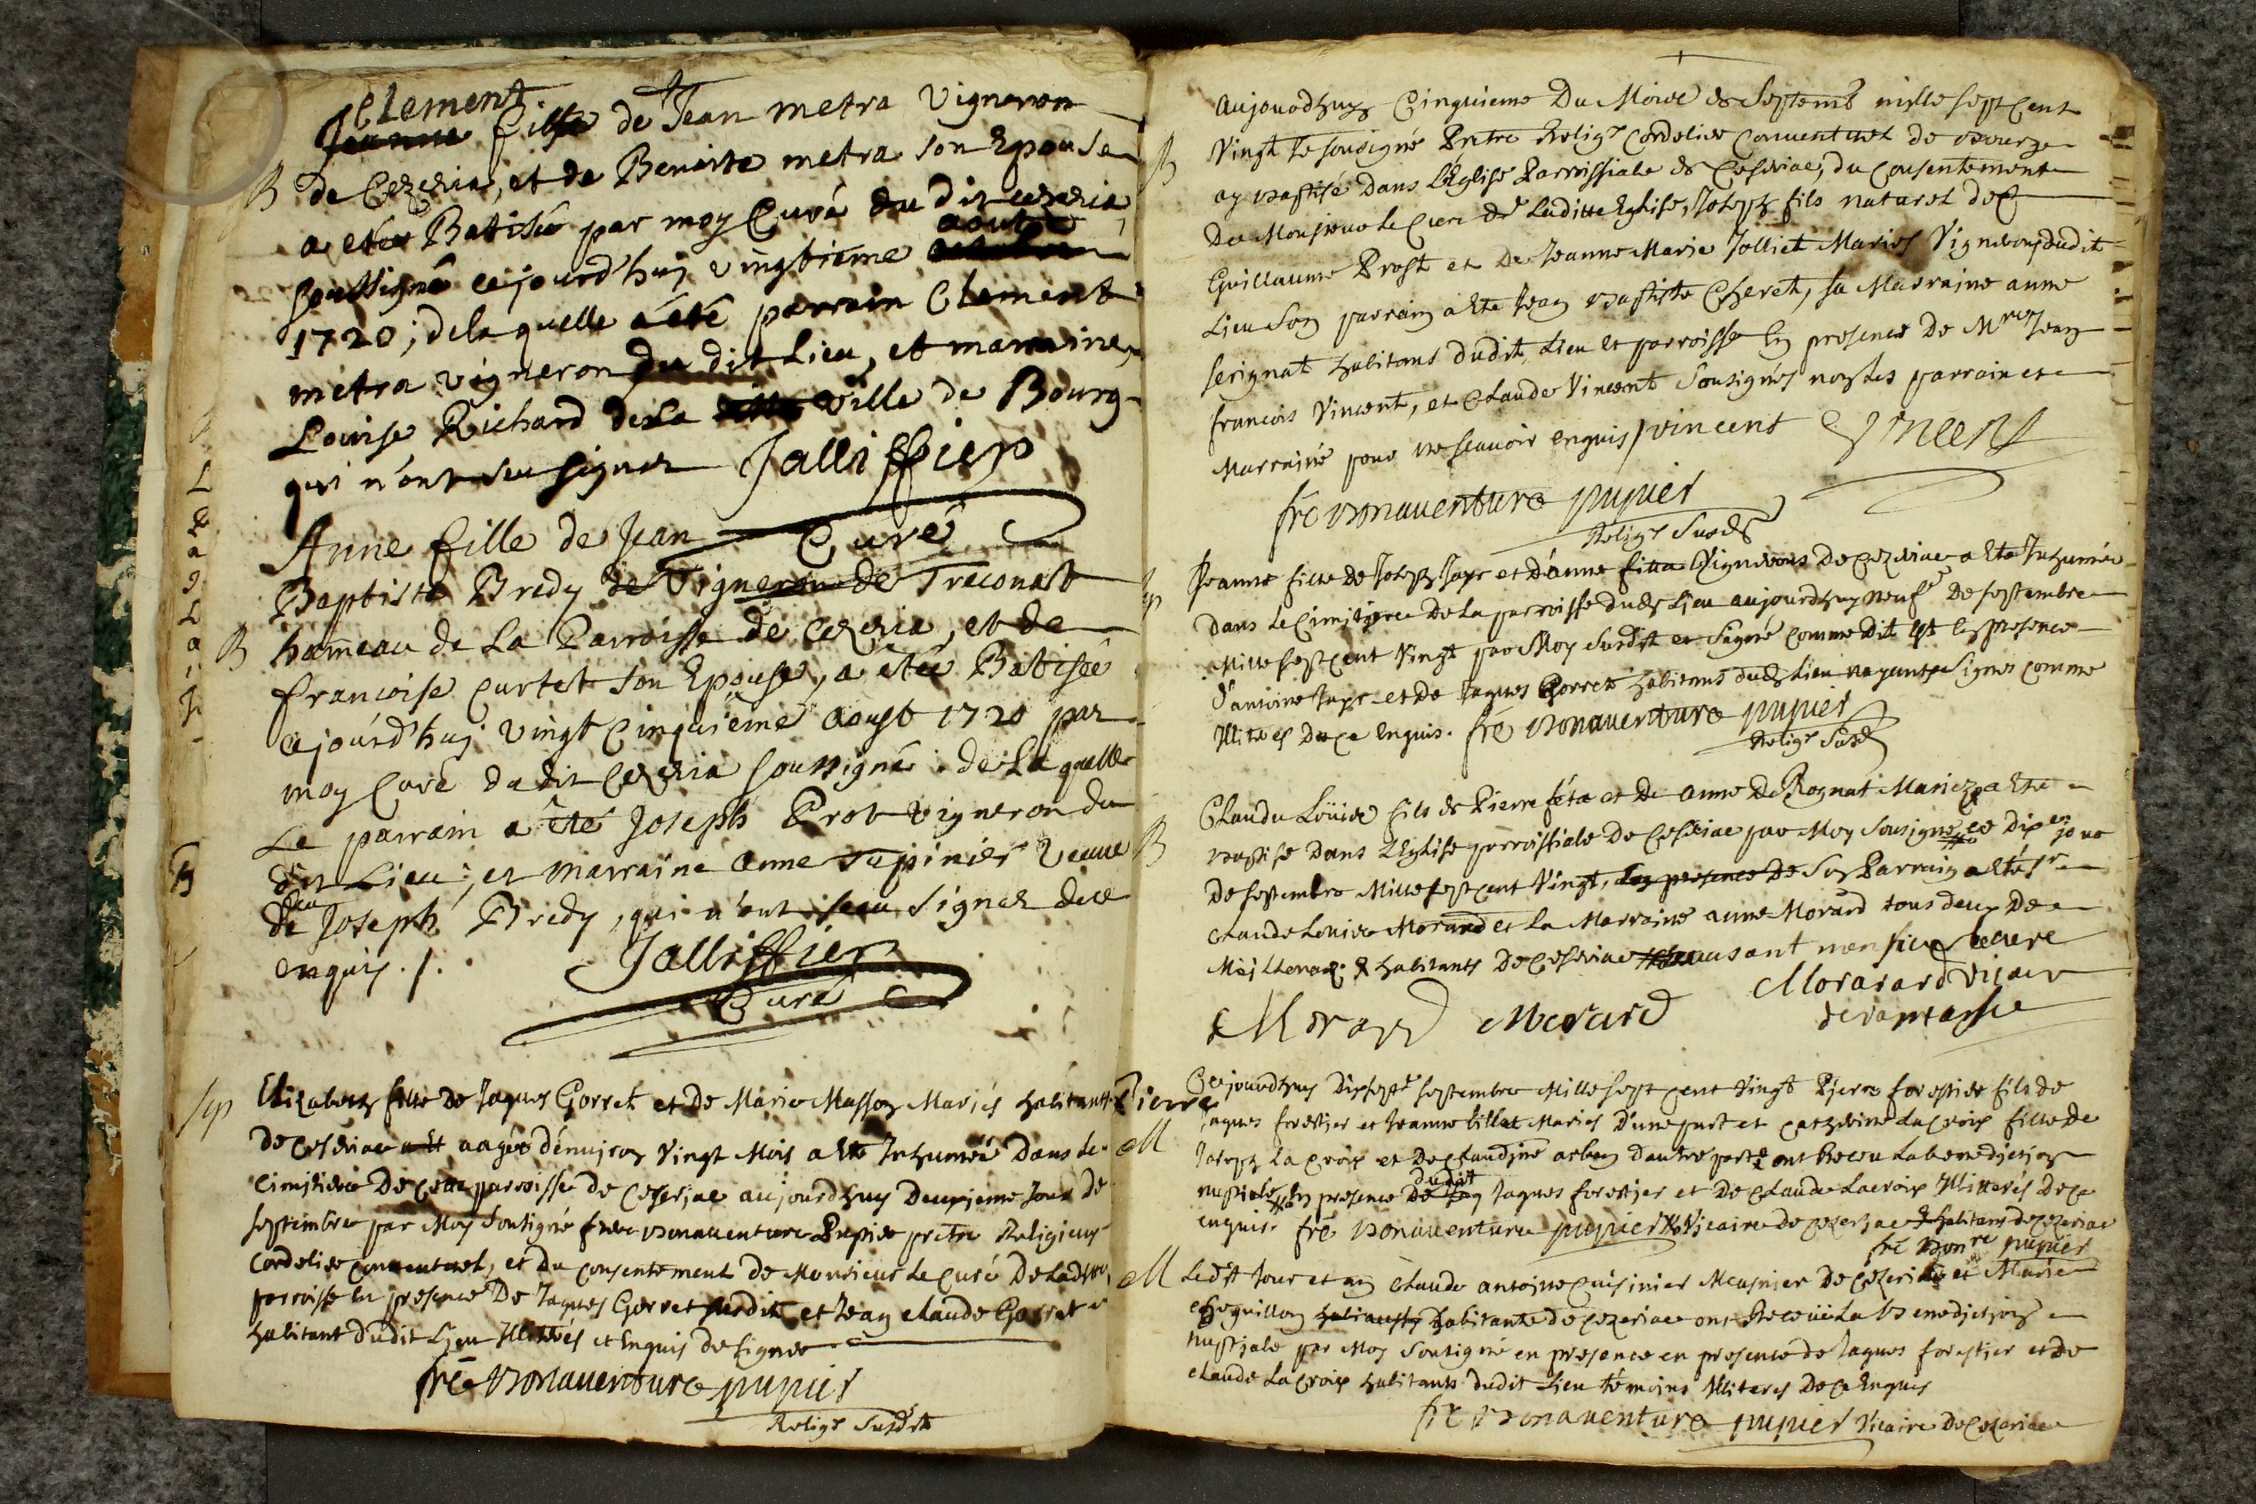 Clement
Jeanne fille de Jean metra vigneron
B de Cezeria, et de Benoite metra son Epouse
a etée Batisée par moy Curé du dit cezeria
aoust
soussigné cejourd'huj vingtieme
1720; de laquelle a été parrain Clement
metra vigneron du dit Lieu, et marraine
Louise Richard de La ville de Bourg
qui n'ont seu signer Jalliffier
Curé
Anne fille de Jean
Baptiste Bredy de Vigneron de Treconast
B hameau de La Parroisse de cezeria, et de
francoise Curtet son Epouse, a étée Batisée
cejourd'huj vingt cinquieme aoust 1720 par
moy Curé du dit Cezeria soussigné: de Laquelle
Le parrain a été Joseph Prot vigneron du
dit Lieu; et marraine anne Veuve
feu
de Joseph Bredy, qui n'ont sceu signer de ce
enquis ./.
Jalliffier
Curé
Sep Elizabeth fille de Jaques Gorret et de Marie Masson Mariés habitants
de Ceseriac aagée d'enuiron Vingt Mois a Ete Inhumée Dans le
Cimitiere De Cette parroisse de Ceseriac aujourdhuy Deuxieme Jour de
septembre par Moy Soussigné frere Bonauenture Pupier pretre Religieux
Cordelier conuentuel, et du consentement de Monsieur Le Curé De Ladite
parroisse En presence De Jaques Gorret susdit et Jean Claude Gorret
habitant dudit Lieu Illitérés et Enquis de signer
fre Bonauenture pupier
Religx Susdit
Aujourdhuy Cinquieme Du Mois de Septemb mille sept Cent
B Vingt Je sousigné Pretre Religx Cordelier Conuentuel de Bourg
ay Baptisé Dans L'Eglise Parroissiale de Ceseriac, du Consentement
De Monsieur le Curé de Laditte Eglise, Joseph fils naturel de
Guillaume Prost et De Jeanne Marie Jolliet Mariés Vignerons dudit
Lieu Son parrain a Ete Jean Baptiste Cheret, sa Marraine anne
Serignat habitans dudit Lieu et parroisse En presence De Mres Jean
francois Vincent, et Claude Vincent Sousignés non les parrain et
Marraine pour ne scauoir enquis / vincent C Vincent
fre Bonauenture pupier
Religx Susdt
Sep Jeanne fille De Joseph Jayr et D'anne fitta Vignerons De Cezeriac a Ete Inhumée
Dans Le Cimitiere De La parroisse dudt Lieu aujourdhuy neufe De septembre
Mille sept cent Vingt par Moy Susdit et Signé comme Dit Est En presence
D'antoine Jayr et De Jaques Gorret habitans dudt Lieu Signer comme
Illiterés De ce Enquis. fre Bonauenture pupier
Religx Susdt
Claude Loüise fils de Pierre feta et De anne De Rognat Mariez a Ete
B Baptisé Dans L'Eglise parroissiale De Ceseriac par Moy Sousigné ce Dixe jour
De septembre Mille sept cent Vingt, en presence De Son Parrain a Eté sr
Claude Louise Morard et La Marraine anne Morard tous deux De
habitants De Ceseriac absant monsieur lecure
Morard Morard Morarard vicaire
de ramasse
Cejourdhuy Dix septe septembre Mille sept cent Vingt Pierre forestier fils de
Pierre
Jaques forestier et Jeanne billet Mariés D'une part et Catherine La Croix fille De
M Joseph La Croix et De Claudine arben Dautre part ont Receu La benediction
dudit
nuptiale En presence De Jaques forestier et De Claude Lacroix Illiterés De ce
enquis. fre Bonauenture pupier Vicaire de cezeriac & habitans de cezeriac
fre Bonre pupier
M Ledit Jour et an Claude antoine Cuisinier Meusnier De Cezeriac et Marie
Gueguillon habitante de cezeriac ont Receüe La Benediction
nuptiale par Moy Sousigné en presence en presence de Jaques forestier et de
Claude La Croix habitants dudit Lieu temoins Illiterés De ce Enquis
fre Bonauenture pupier Vicaire De Cezeriac